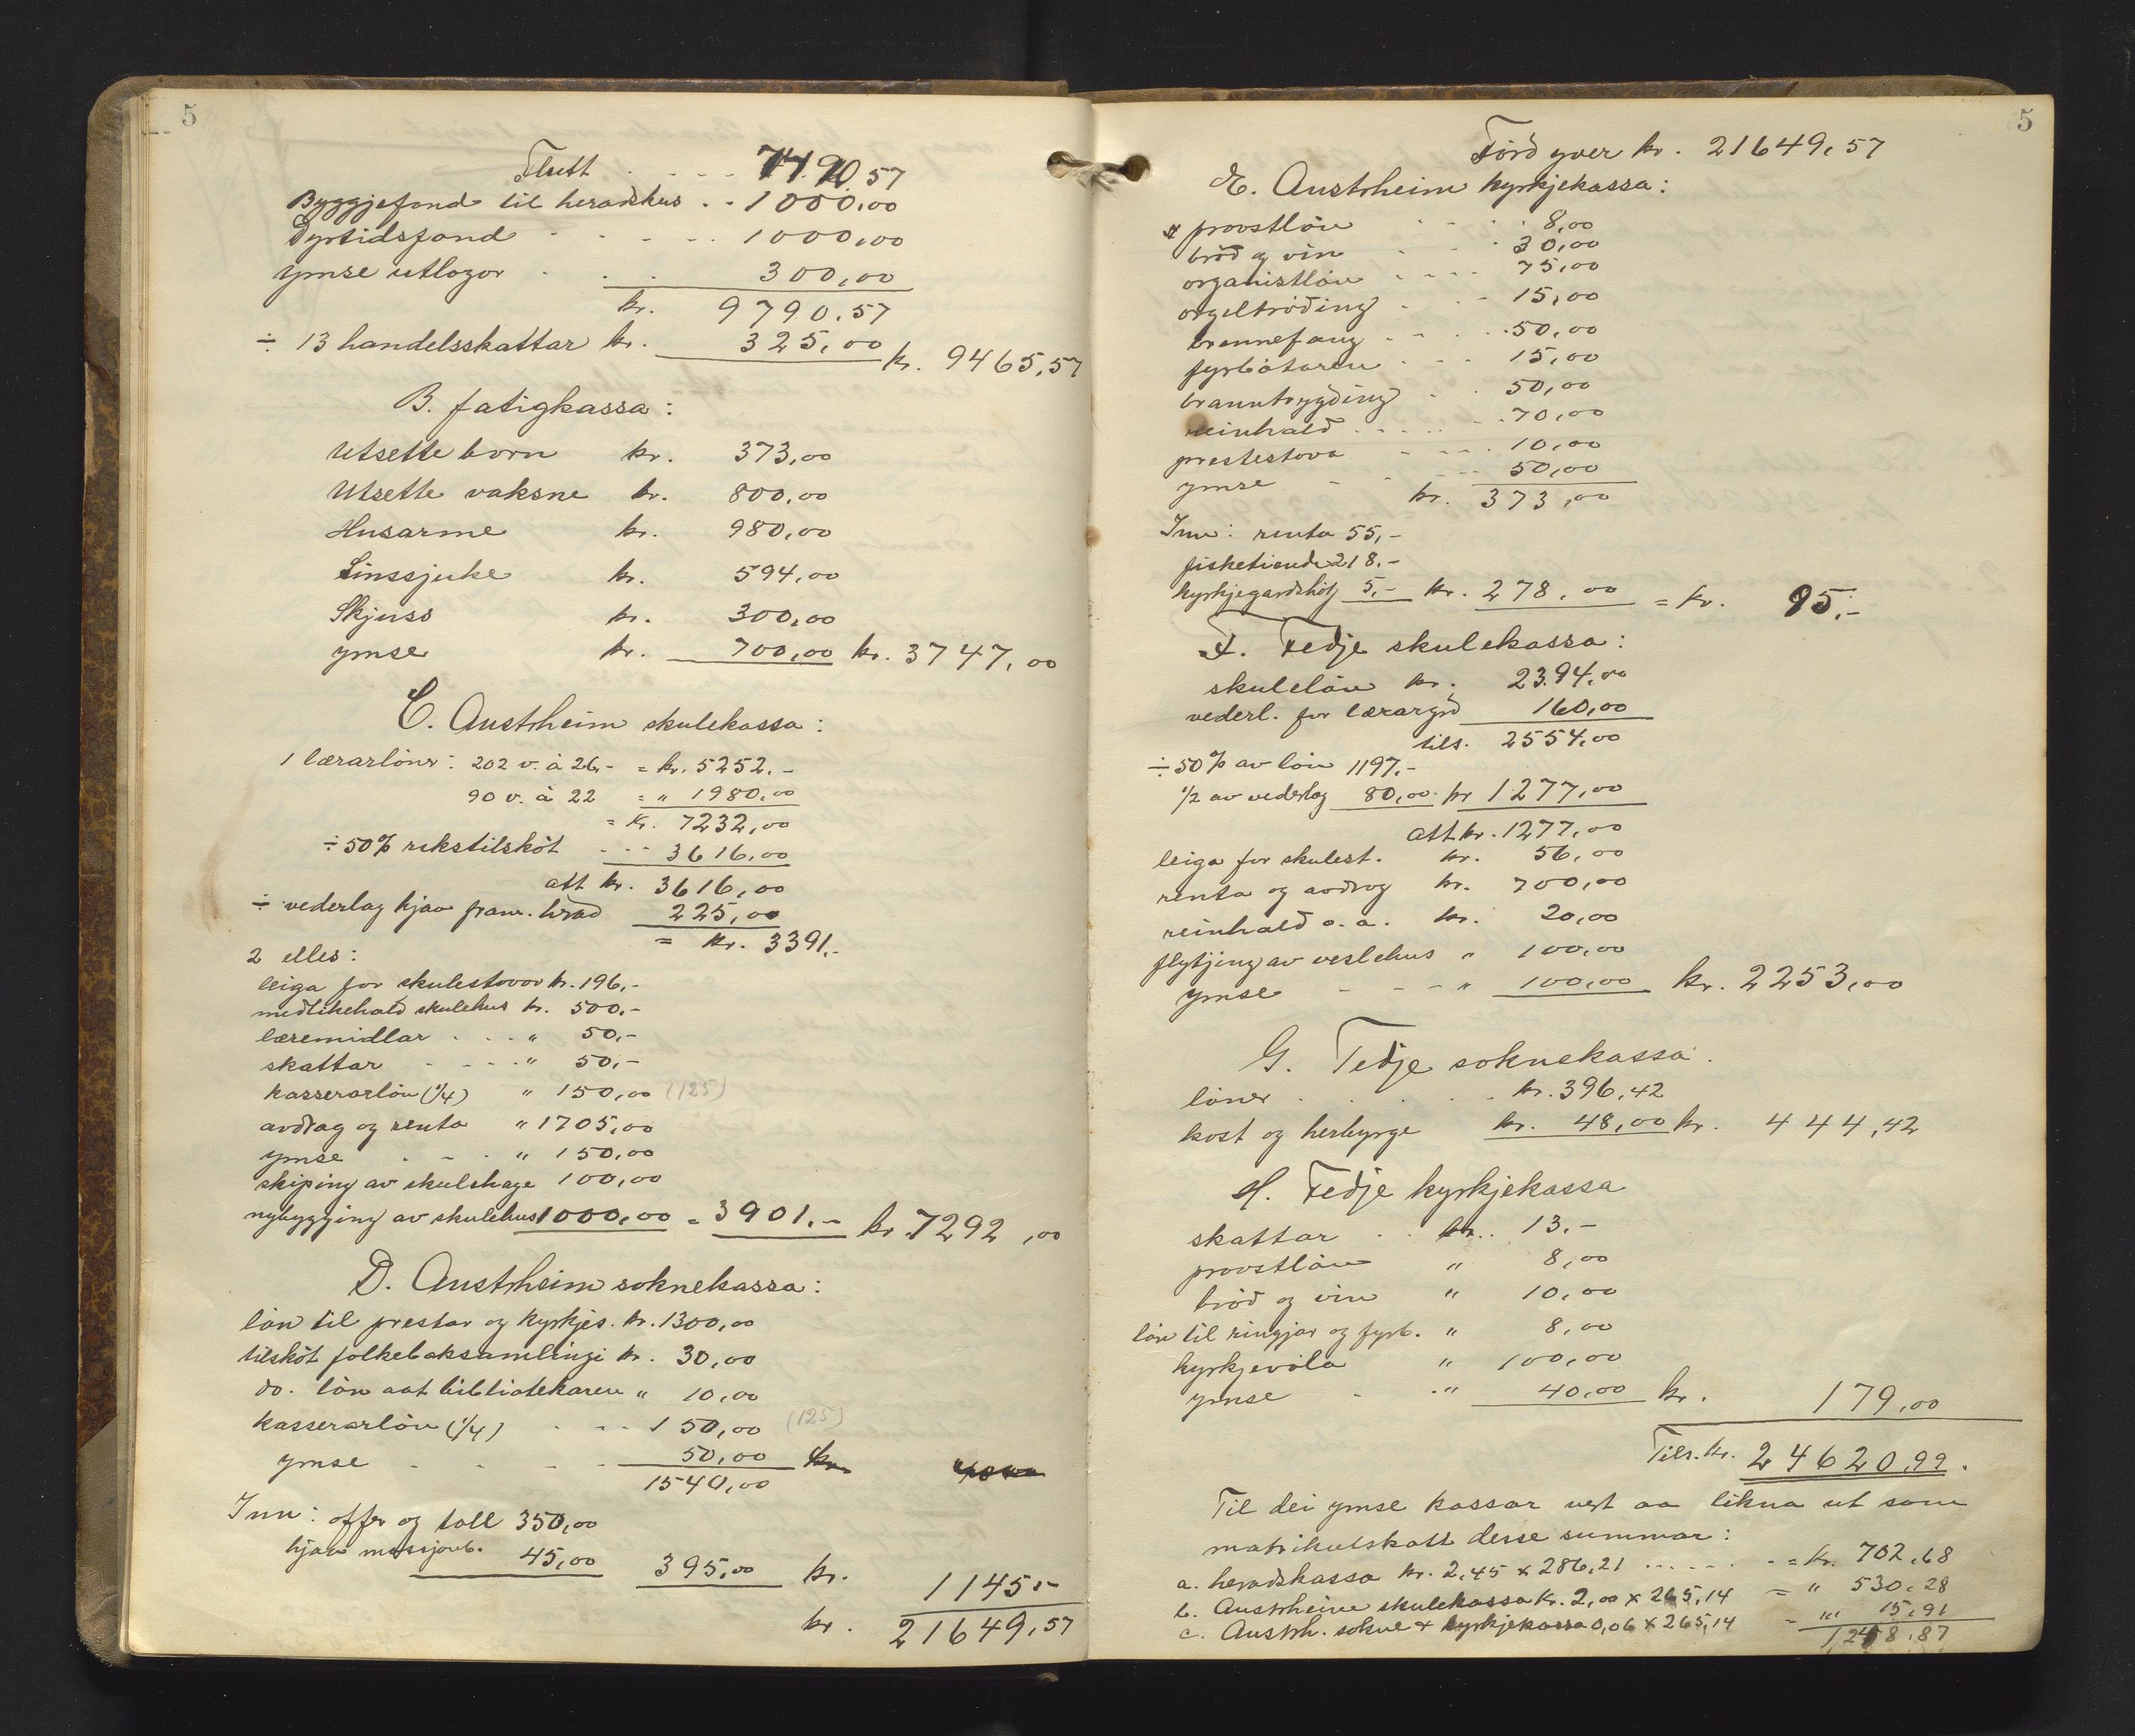 5
Flutt . . . . 7490,57
Byggjefond til heradshus . . 1000,00
Dyrtidsfond . . . . . 1000,00
ymse utlogor . . . 300,00
kr. 9790.57
÷ 13 handelsskattar kr. 325,00 kr. 9465,57
B. fatigkassa:
Utsette born kr. 373,00
Utsette vaksne kr. 800,00
Husarme kr. 980,00
Sinssjuke kr. 594,00
Skjuss kr. 300,00
ymse kr. 700,00 kr. 3747,00
C. Austrheim skulekassa:
1 lærarlöner: 202 v. à 26,- = kr. 5252.-
90 v. à 22 = " 1980,00
= kr. 7232,00
÷ 50% rikstilsköt - - - 3616,00
att kr. 3616,00
÷ vederlag hjav fram. hrad 225,00
= kr. 3391.-
2 elles:
leiga for skulestovor kr. 196,-
medlikehald skulehus kr. 500,-
læremidlar . . . " 50,-
skattar - - - - " 50,-
kasserarlön (1/4) " 150,00 (125)
avdrag og renta " 1705,00
ymse . - . " 150,00
skiping av skulehage 100,00
nybygging av skulehus 1000,00 = 3901.- kr 7292,00
D. Austrheim soknekassa:
lön til prestar og kyrkjes. kr. 1300,00
tilsköt folkeboksamlingi kr. 30,00
do. lön aat bibliotekaren " 10,00
kasserarlön (1/4) . - - 150,00 (125)
ymse . . . - 50,00 kr.
1540,00
Inn: offer og toll 350,00
hjav 45,00 395,00 kr. 1145,-
kr. 21649,57
5
Förd yver kr. 21649,57
E. Austrheim kyrkjekassa:
provstlön . . . 8,00
bröd og vin . . . 30,00
organistlön . . . . 75,00
orgeltröding . . - 15,00
brennefang - - . . 50,00
fyrbötaren . . . 15,00
branntrygding . . 50,00
reinhald . . . . . 70,00
prestestova - - . . 10,00
ymse - - - 50,00
kr. 373,00
Inn: renta 55,-
fisketiende 218.-
kyrkjegardshöy 5,- kr. 278,00 = kr. 95,-
F. Fedje skulekassa:
skulelön kr. 2394,00
vederl. for lærargrd 160,00
tils. 2554,00
÷ 50% av lön 1197,-
1/2 av vederlag 80,00 kr 1277,00
att kr. 1277,00
leiga for skulest. kr. 56,00
renta og avdrag kr. 700,00
reinhald o. a. kr. 20,00
flytjing av veslehus " 100,00
ymse - - - " 100,00 kr. 2253,00
G. Fedje soknekassa.
löner . . . . . kr. 396,42
kost og herbyrge kr. 48,00 kr. 444,42
H. Fedje kyrkjekassa
skattar . . kr. 13.-
provstlön " 8,00
bröd og vin " 10,00
lön til ringjar og fyrb. " 8,00
kyrkjevöla " 100,00
ymse - . " 40,00 kr. 179,00
Tils. kr. 24620,99.
Til dei ymse kassar vert aa likna ut som
matrikulskatt desse summar:
a. heradskassa kr. 2,45 x 286,21 . . . . . - = kr. 702,68
b. Austrheim skulekassa kr. 2,00 x 265,14 = " 530,28
c. Austrh. sokne + kyrkjekassa 0,06 x 265,14 = " 15,91
1,248,87